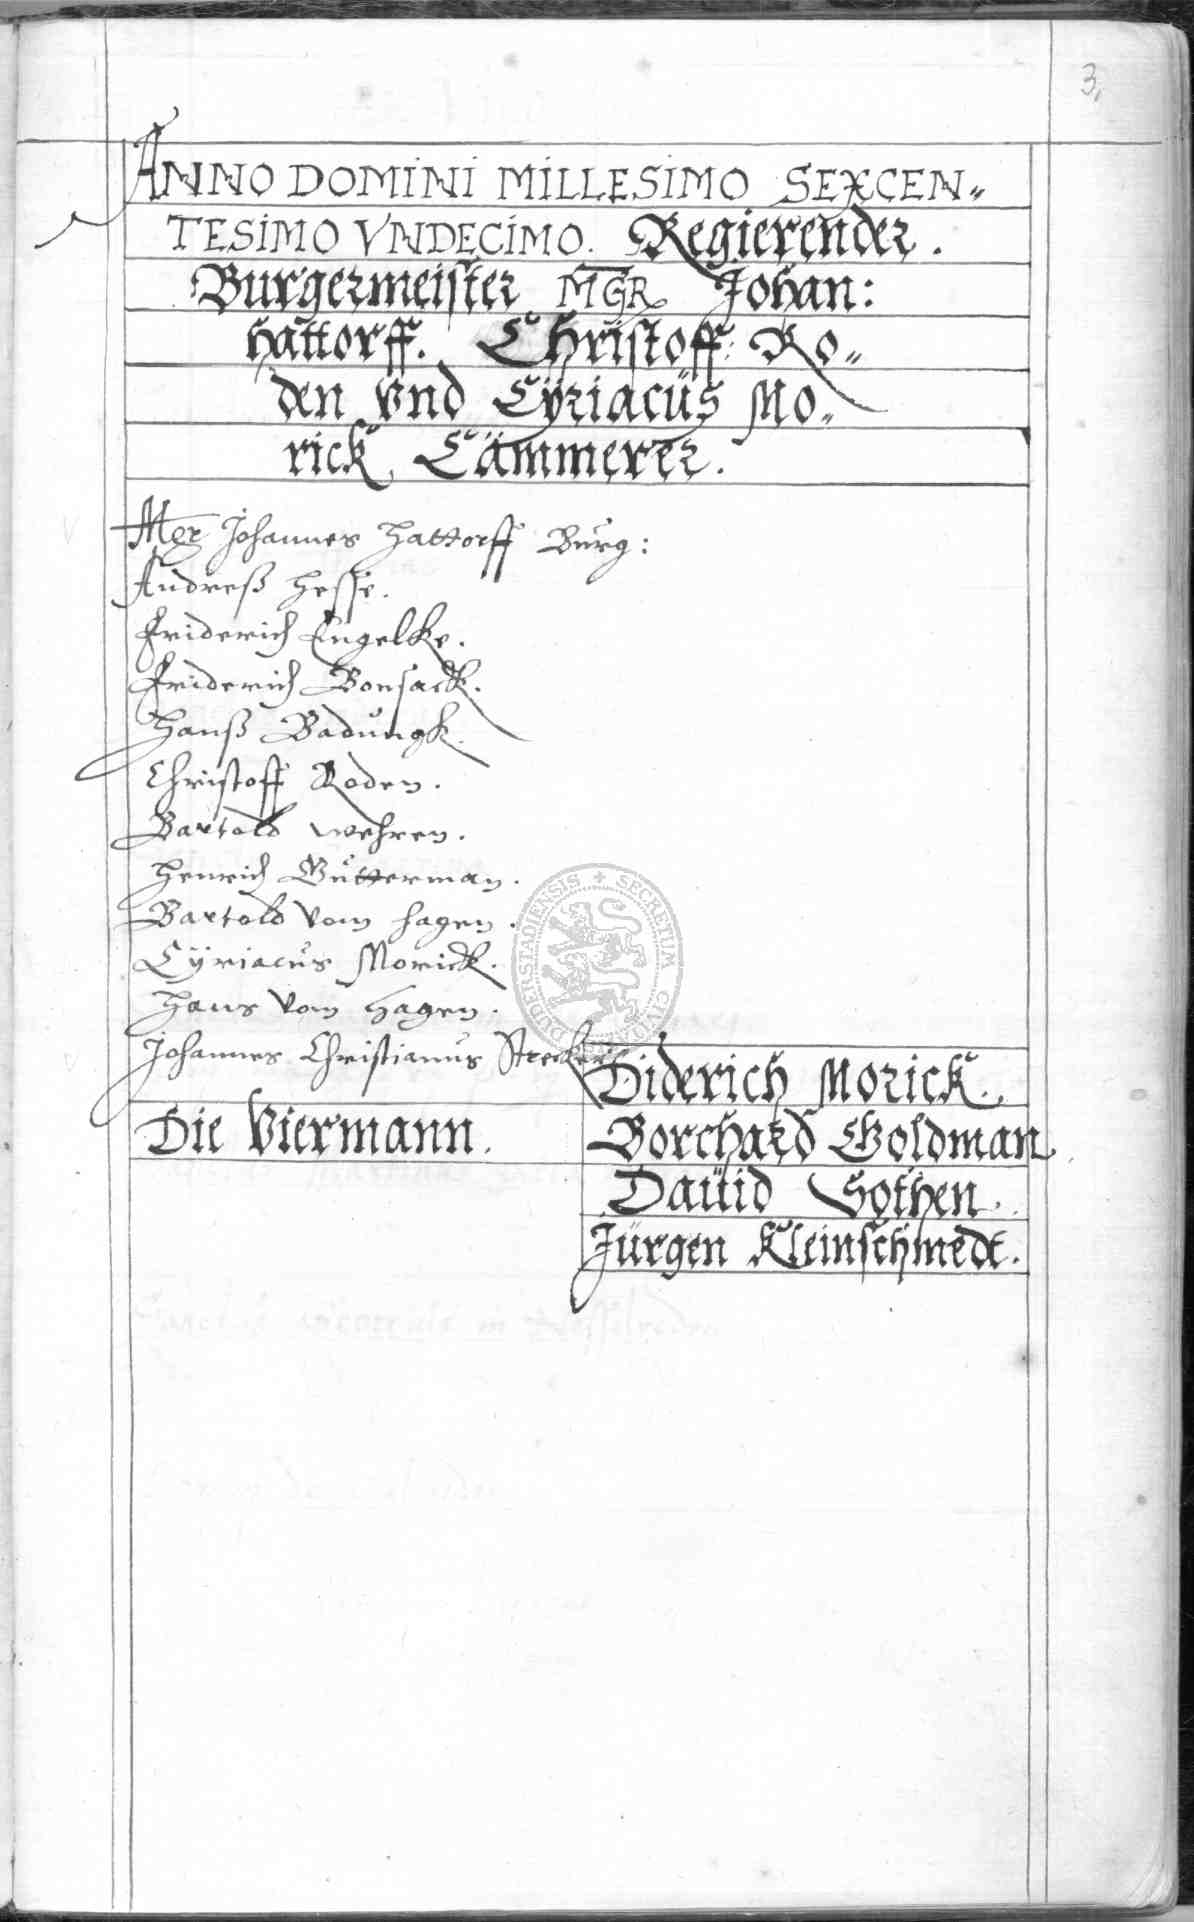 3.
ANNO DOMINI MILLESIMO SEXCEN-
TESIMO VNDECIMO. Regierender.
Burgermeister MGR Johan:
hattorff. Christoff: Ro-
den vnd Cÿriacüs Mo-
rick Cämmerer.
Mgr Johannes Hattorff Burg:
Andreß Hesse.
Friderich Engelke.
Friderich Bonsack.
Hanß Badungk.
Christoff Roden.
Bartold Wehren.
Henrich Gutterman.
Bartold Vom Hagen.
Cÿriacus Morick.
Hans Vom Hagen.
Johannes Christianus Strecker
Die Viermann.
Diderich Morick.
Borchard Goldman
Dauid Gothen.
Jürgen Kleinschmedt.
SECRETUM CIVITATIS DUDERSTADIENSIS